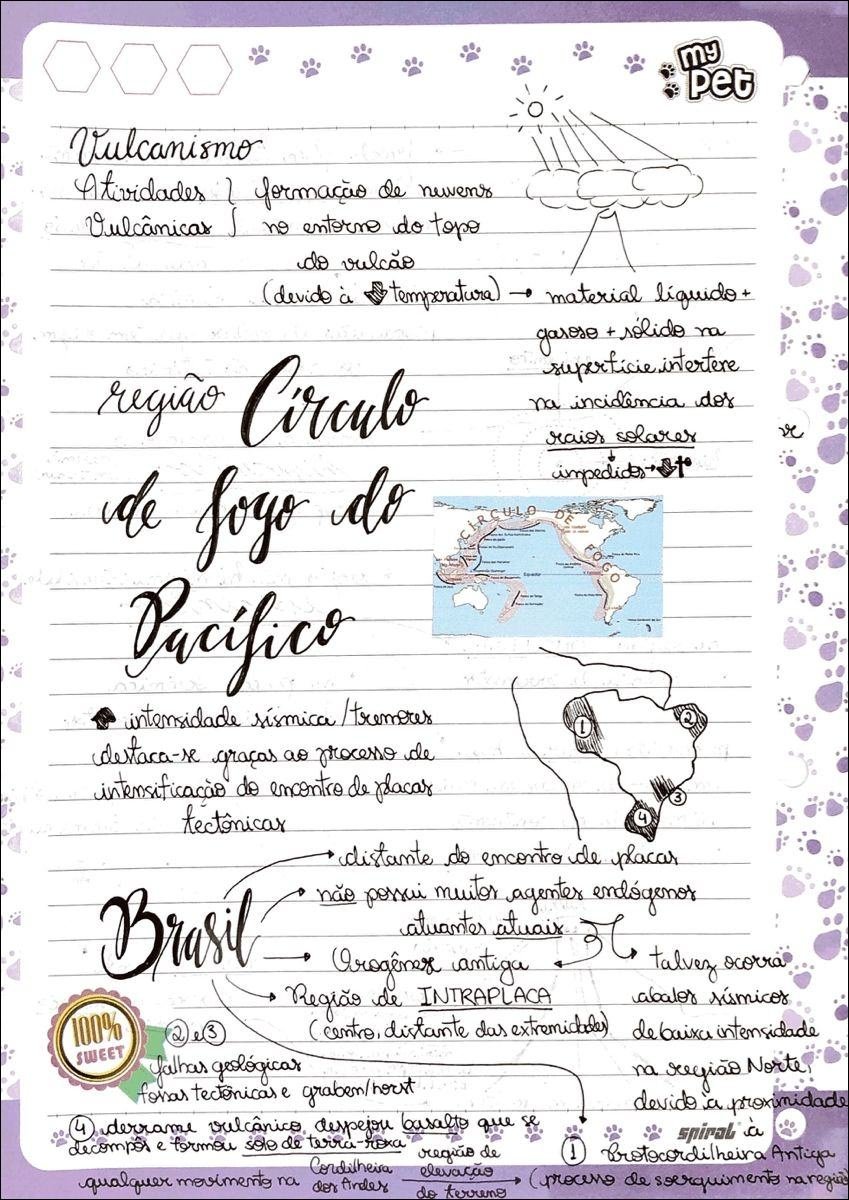 my
pet
Vulcanismo
Atividades } formação de nuvens
Vulcânicas } no entorno do topo
do vulcão
(devido à ⬇ temperatura) → material líquido +
gasoso + sólido na
superfície, interfere
na incidência dos
raios solares
impedidos → ⬇ t°
região Círculo
de fogo do
Pacífico
CÍRCULO DE FOGO
Equador
⬆ intensidade sísmica / tremores
destaca-se graças ao processo de
intensificação do encontro de placas
tectônicas
① ② ③ ④
Brasil
→ distante do encontro de placas
→ não possui muitos agentes endógenos
atuantes atuais
→ Orogênese antiga
→ Região de INTRAPLACA
(centro, distante das extremidades)
talvez ocorra
abalos sísmicos
de baixa intensidade
na região Norte,
devido à proximidade
à
100%
SWEET
② e ③
falhas geológicas
fossas tectônicas e graben/horst
④ derrame vulcânico, despejou basalto que se
decompôs e formou solo de terra-roxa
spiral
① Protocordilheira Antiga
(processo de soerguimento na região
qualquer movimento na Cordilheira dos Andes região de elevação do terreno →